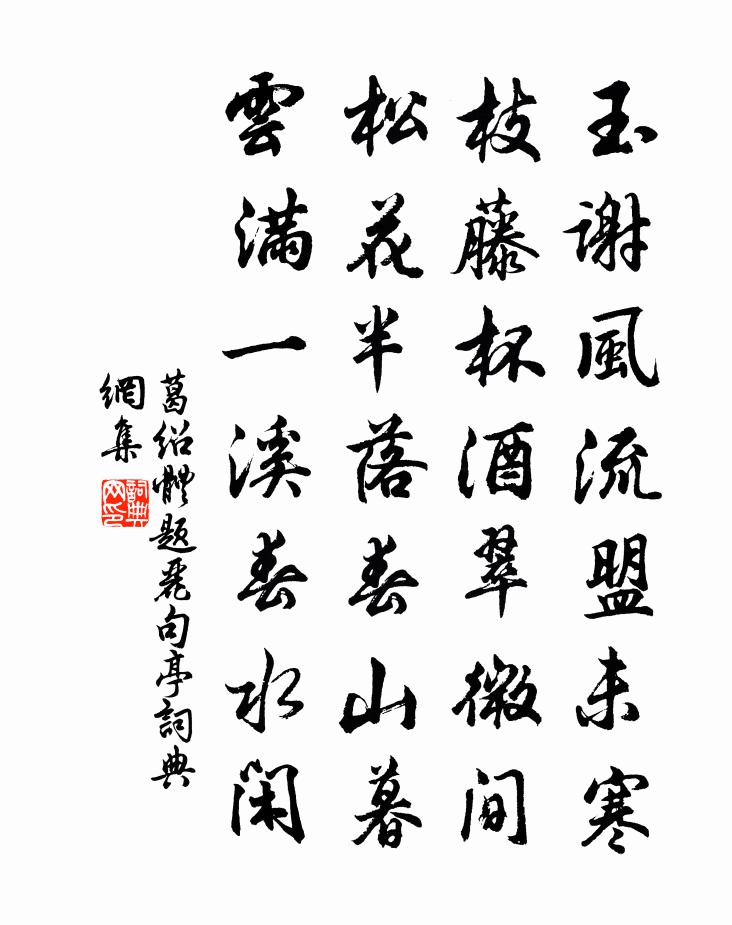 玉謝風流盟未寒
枝藤杯酒翠微间
松花半落春山暮
雲满一溪春水閑
葛绍體題飛句亭詞典
網集
詞典網印